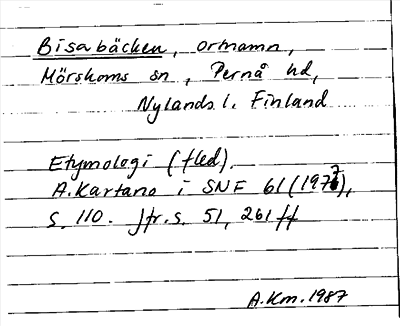 Bisabäcken, ortnamn,
Mörskoms sn, Pernå hd,
Nylands l. Finland
Etymologi (fled).
A. Kartano i SNF 61 (1972),
s. 110. Jfr. s. 51, 261 ff
A. Km. 1987